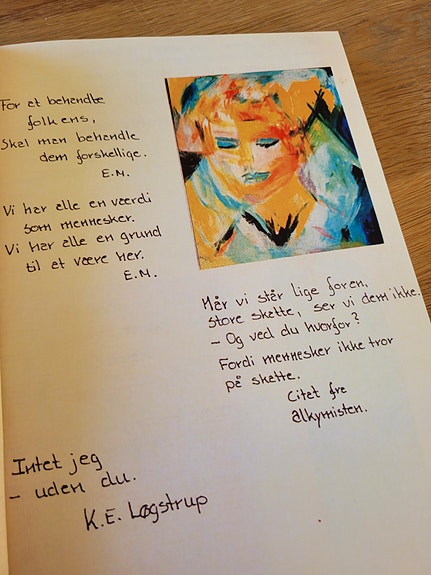 For at behandle
folk ens,
Skal man behandle
dem forskellige.
E.M.
Vi har alle en værdi
som mennesker.
Vi har alle en grund
til at være her.
E.M.
Når vi står lige foran
store skatte, ser vi dem ikke.
- Og ved du hvorfor?
Fordi mennesker ikke tror
på skatte.
Citat fra
alkymisten.
Intet jeg
- uden du.
K.E. Løgstrup